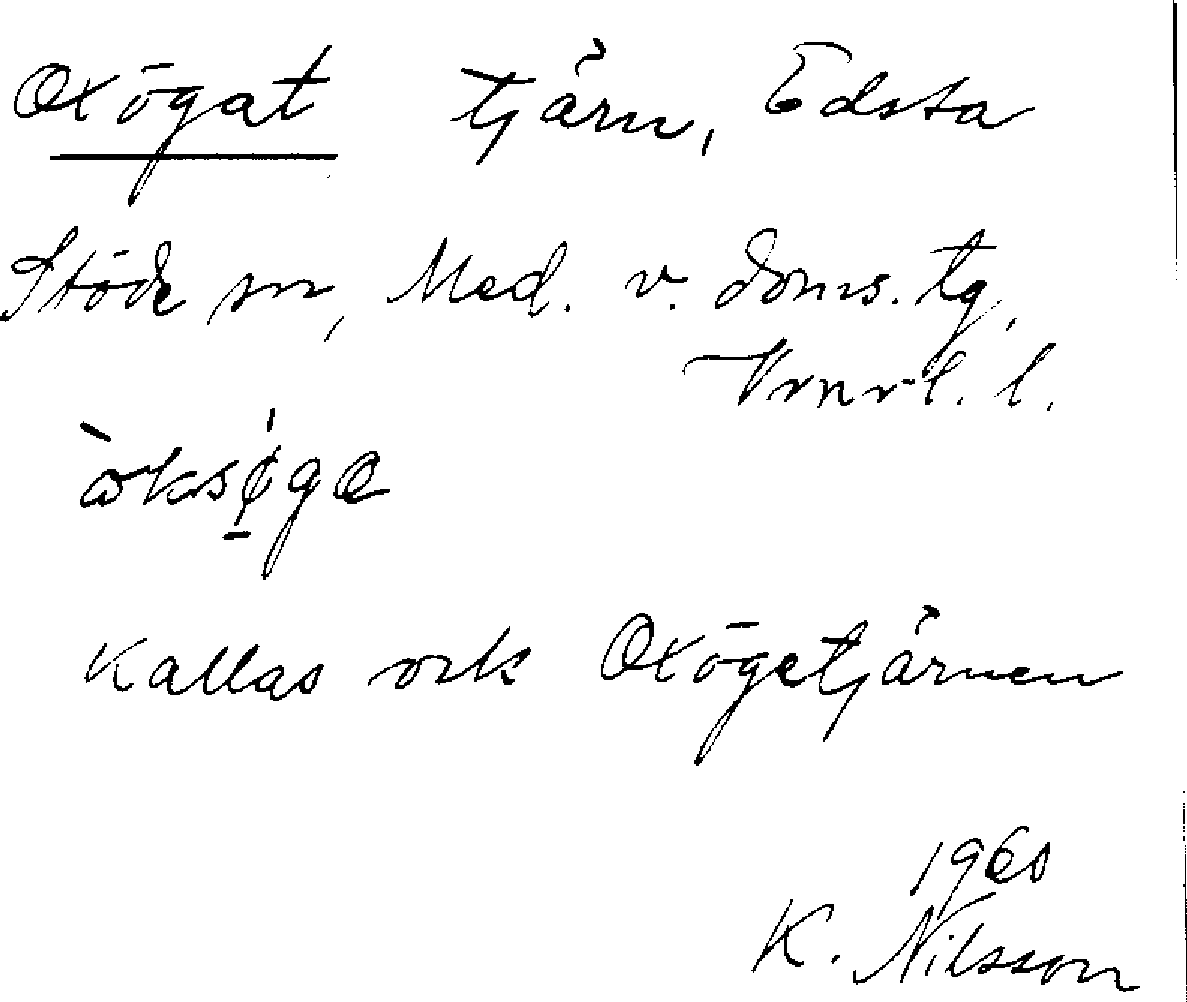 Oxögat tjärn, Edsta
Stöde sn, Med. v. doms. tg,
Vrnrl. l.
kallas ock Oxögetjärnen
1960
K. Nilsson